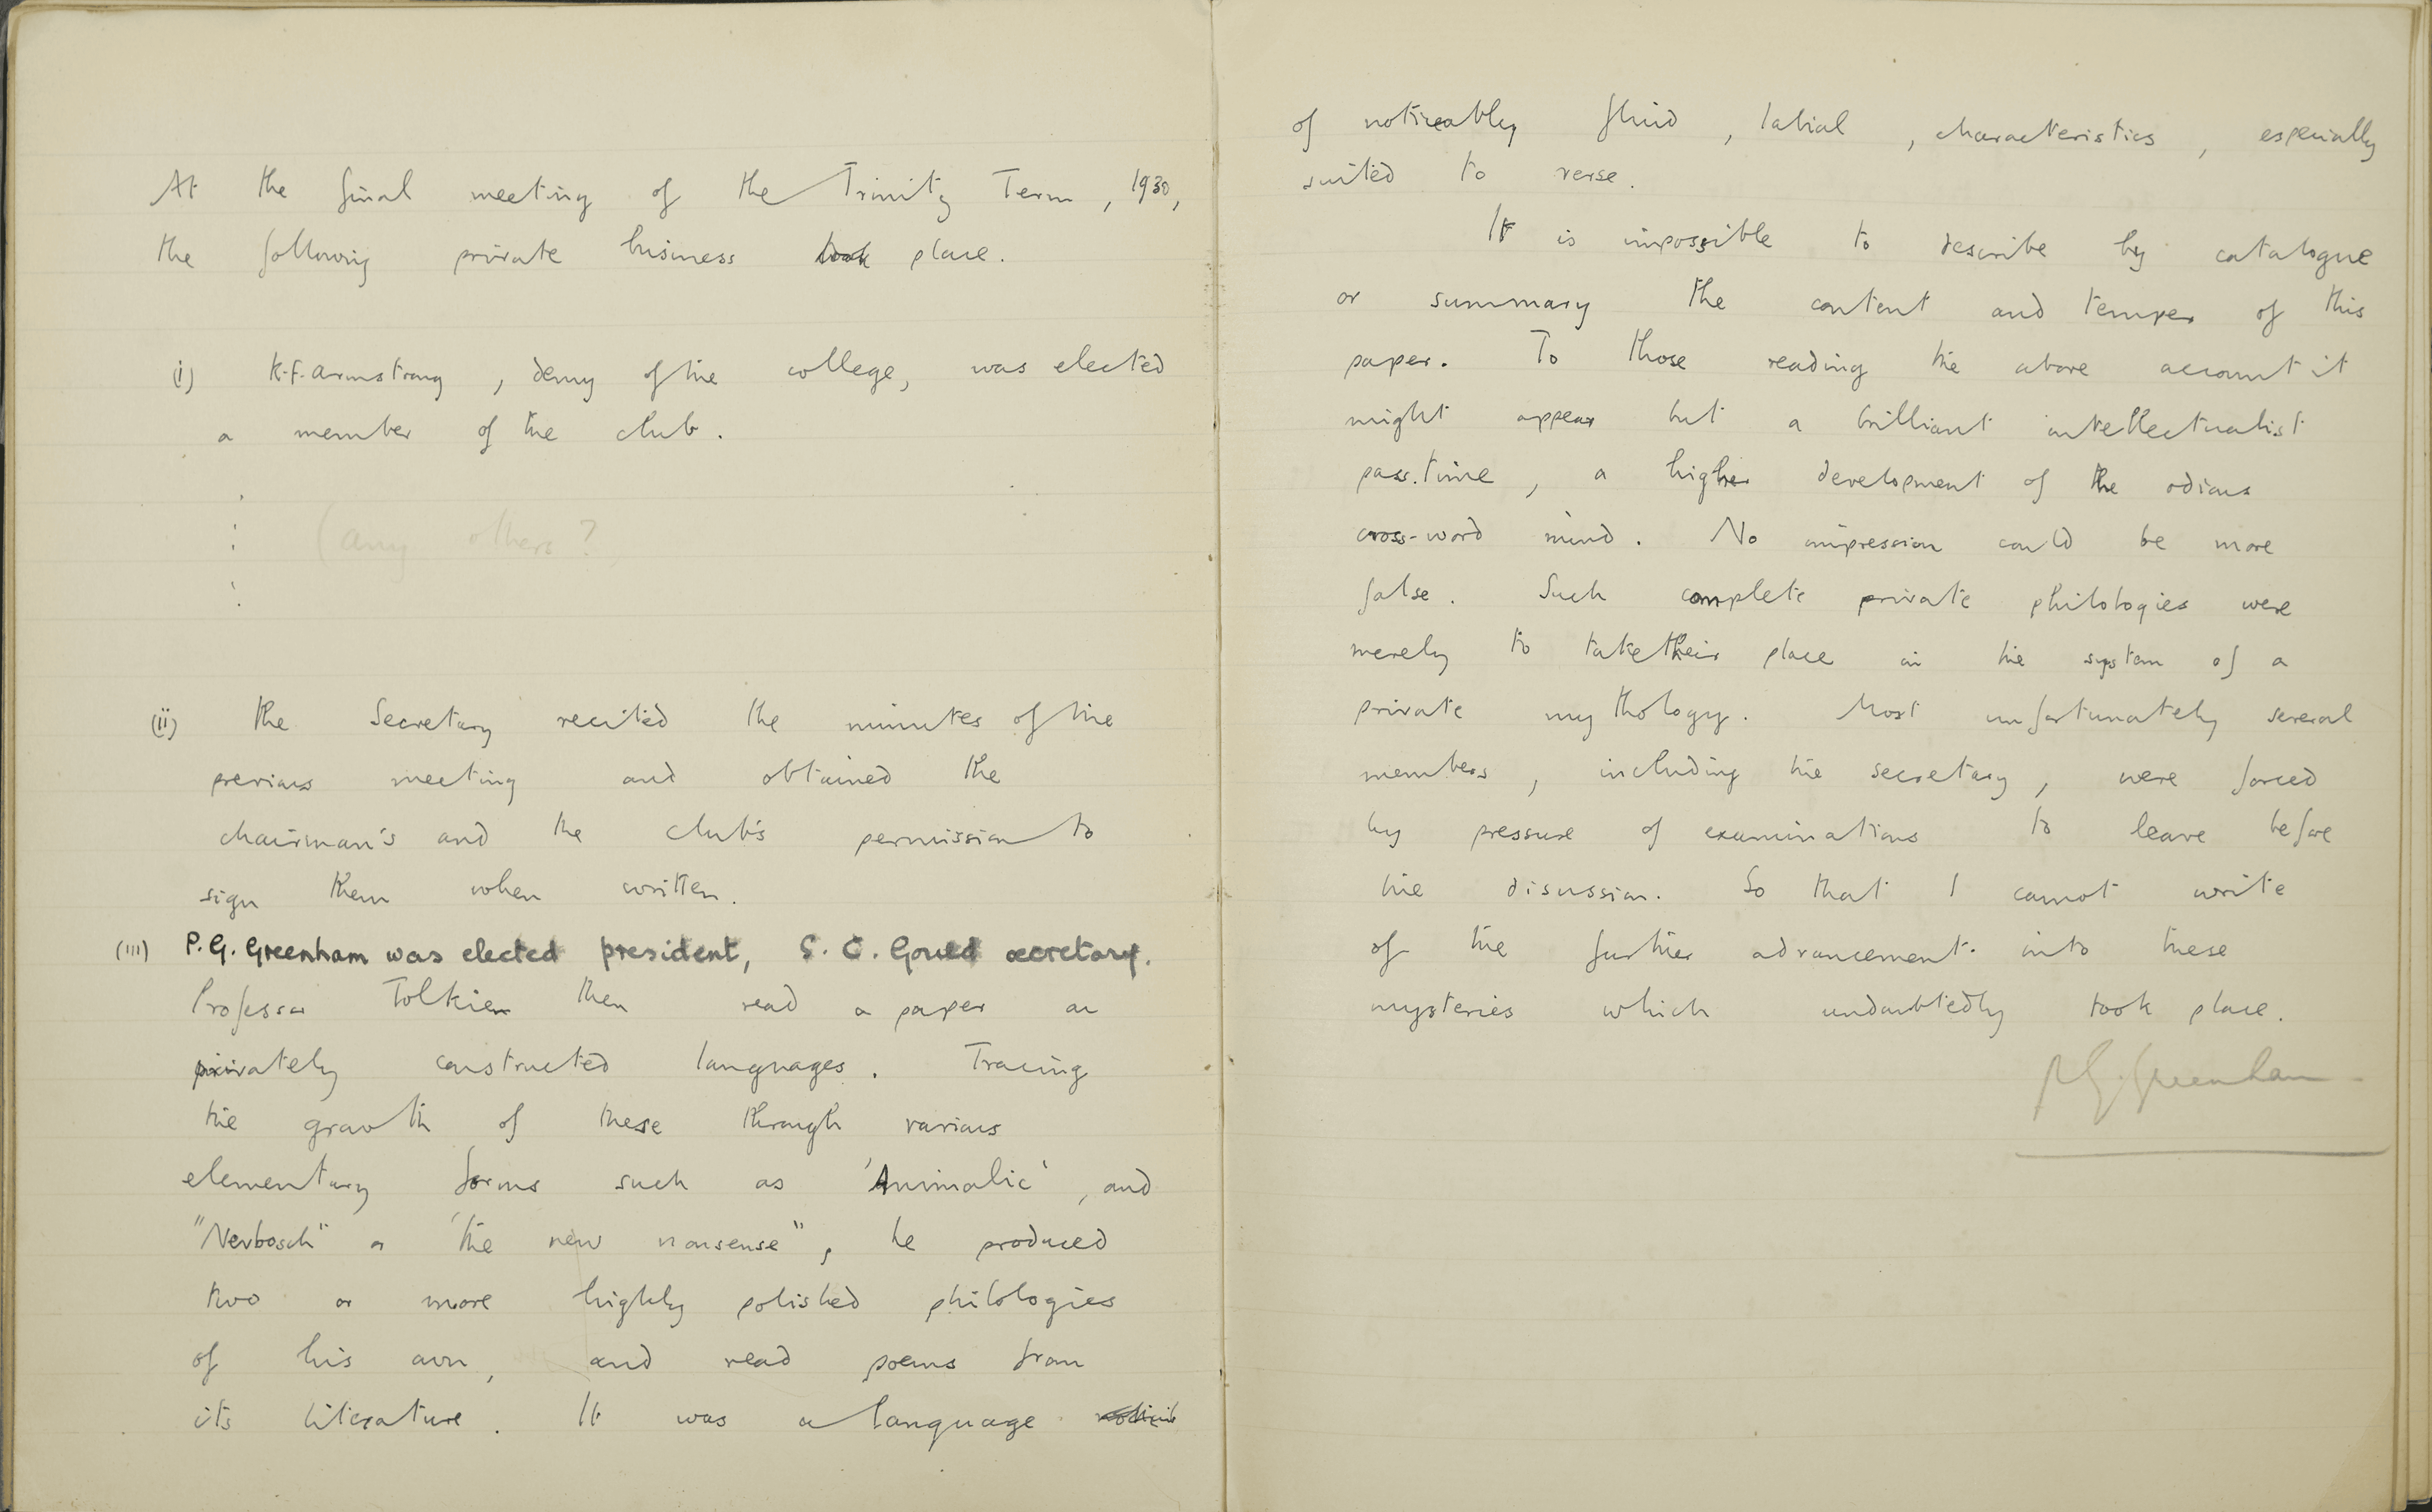 At the final meeting of the Trinity Term, 1930,
the following private business took place.
(i) K.F. Armstrong, demy of the college, was elected
a member of the club.
(any others?
(ii) The Secretary recited the minutes of the
previous meeting and obtained the
chairman's and the club's permission to
sign them when written.
(iii) P.G. Greenham was elected president, S. C. Gould secretary.
Professor Tolkien then read a paper on
privately constructed languages. Tracing
the growth of these through various
elementary forms such as 'Animalic', and
"Nevbosch" or 'the new nonsense", he produced
two or more highly polished philologies
of his own, and read poems from
its literature. It was a language
of noticeably fluid, labial, characteristics, especially
suited to verse.
It is impossible to describe by catalogue
or summary the content and temper of this
paper. To those reading the above account it
might appear but a brilliant intellectualist
pass-time, a higher development of the odious
cross-word mind. No impression could be more
false. Such complete private philologies were
merely to take their place in the system of a
private mythology. Most unfortunately several
members, including the secretary, were forced
by pressure of examinations to leave before
the disussion. So that I cannot write
of the further advancement into these
mysteries which undoubtedly took place.
P.G. Greenham